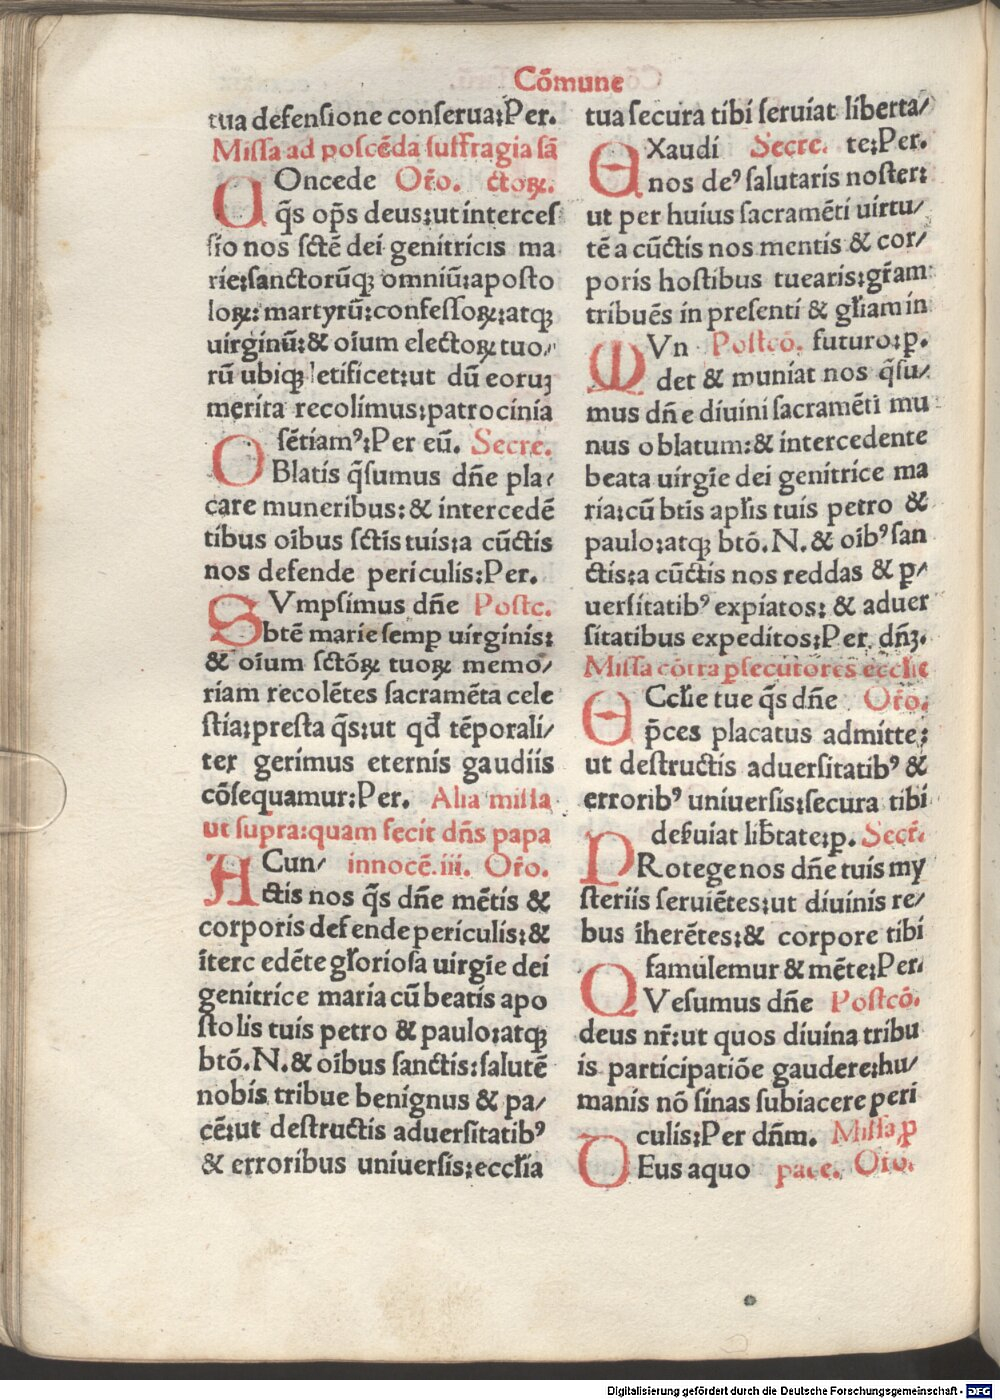 Cõmune
tua defensione conserua:Per.
Missa ad poscẽda suffragia sã
Oncede Orõ. ctoꝝ.
q̃s op̃s deus:ut interces
sio nos sctẽ dei genitricis ma
rie:sanctorũqꝫ omniũ:aposto
loꝝ: martyrũ:confessoꝝ:atqꝫ
uirginũ:& oĩum electoꝝ tuo/
rũ ubiqꝫ letificet:ut dũ eoruꝫ
merita recolimus:patrocinia
sẽtiamꝰ:Per eũ. Secre.
OBlatis q̃sumus dñe pla/
care muneribus:& intercedẽ
tibus oĩbus sctĩs tuis:a cũctis
nos defende periculis:Per.
SVmpsimus dñe Postc.
btẽ marie semp uirginis:
& oĩum sctõꝝ tuoꝝ memo/
riam recolẽtes sacramẽta cele
stia:presta q̃s:ut qđ tẽporali/
ter gerimus eternis gaudiis
cõsequamur:Per. Alia missa
ut supra:quam fecit dñs papa
ACun/ innocẽ.iii. Orõ.
ctis nos q̃s dñe mẽtis &
corporis defende periculis:&
ĩtercedẽte gl̃oriosa uirgĩe dei
genitrice maria cũ beatis apo
stolis tuis petro & paulo:atqꝫ
btõ.N.& oĩbus sanctis:salutẽ
nobis tribue benignus & pa/
cẽ:ut destructis aduersitatibꝰ
& erroribus uniuersis:eccl̃ia
tua secura tibi seruiat liberta/
EXaudi Secre. te:Per.
nos deꝰ salutaris noster:
ut per huius sacramẽti uirtu/
tẽ a cũctis nos mentis & cor/
poris hostibus tuearis:gr̃am
tribuẽs in presenti & gl̃iam in
MVn Postcõ. futuro:ꝑ.
det & muniat nos q̃su/
mus dñe diuini sacramẽti mu
nus oblatum:& intercedente
beata uirgĩe dei genitrice ma
ria:cũ btĩs apl̃is tuis petro &
paulo:atqꝫ btõ.N.& oĩbꝰ san
ctis:a cũctis nos reddas & ꝑ/
uersitatibꝰ expiatos: & aduer
sitatibus expeditos:Per dñꝫ.
Missa cõtra ꝑsecutores eccl̃ie
ECcl̃ie tue q̃s dñe Orõ.
p̃ces placatus admitte:
ut destructis aduersitatibꝰ &
erroribꝰ uniuersis:secura tibi
deseruiat lib̃tate:ꝑ. Secr̃.
PRotege nos dñe tuis my
steriis seruiẽtes:ut diuinis re/
bus ĩherẽtes:& corpore tibi
famulemur & mẽte:Per.
QVesumus dñe Postcõ.
deus nr̃:ut quos diuina tribu
is participatiõe gaudere:hu/
manis nõ sinas subiacere peri
culis:Per dñm. Missa ꝓ
DEus a quo pace. Orõ.
Digitalisierung gefördert durch die Deutsche Forschungsgemeinschaft - DFG